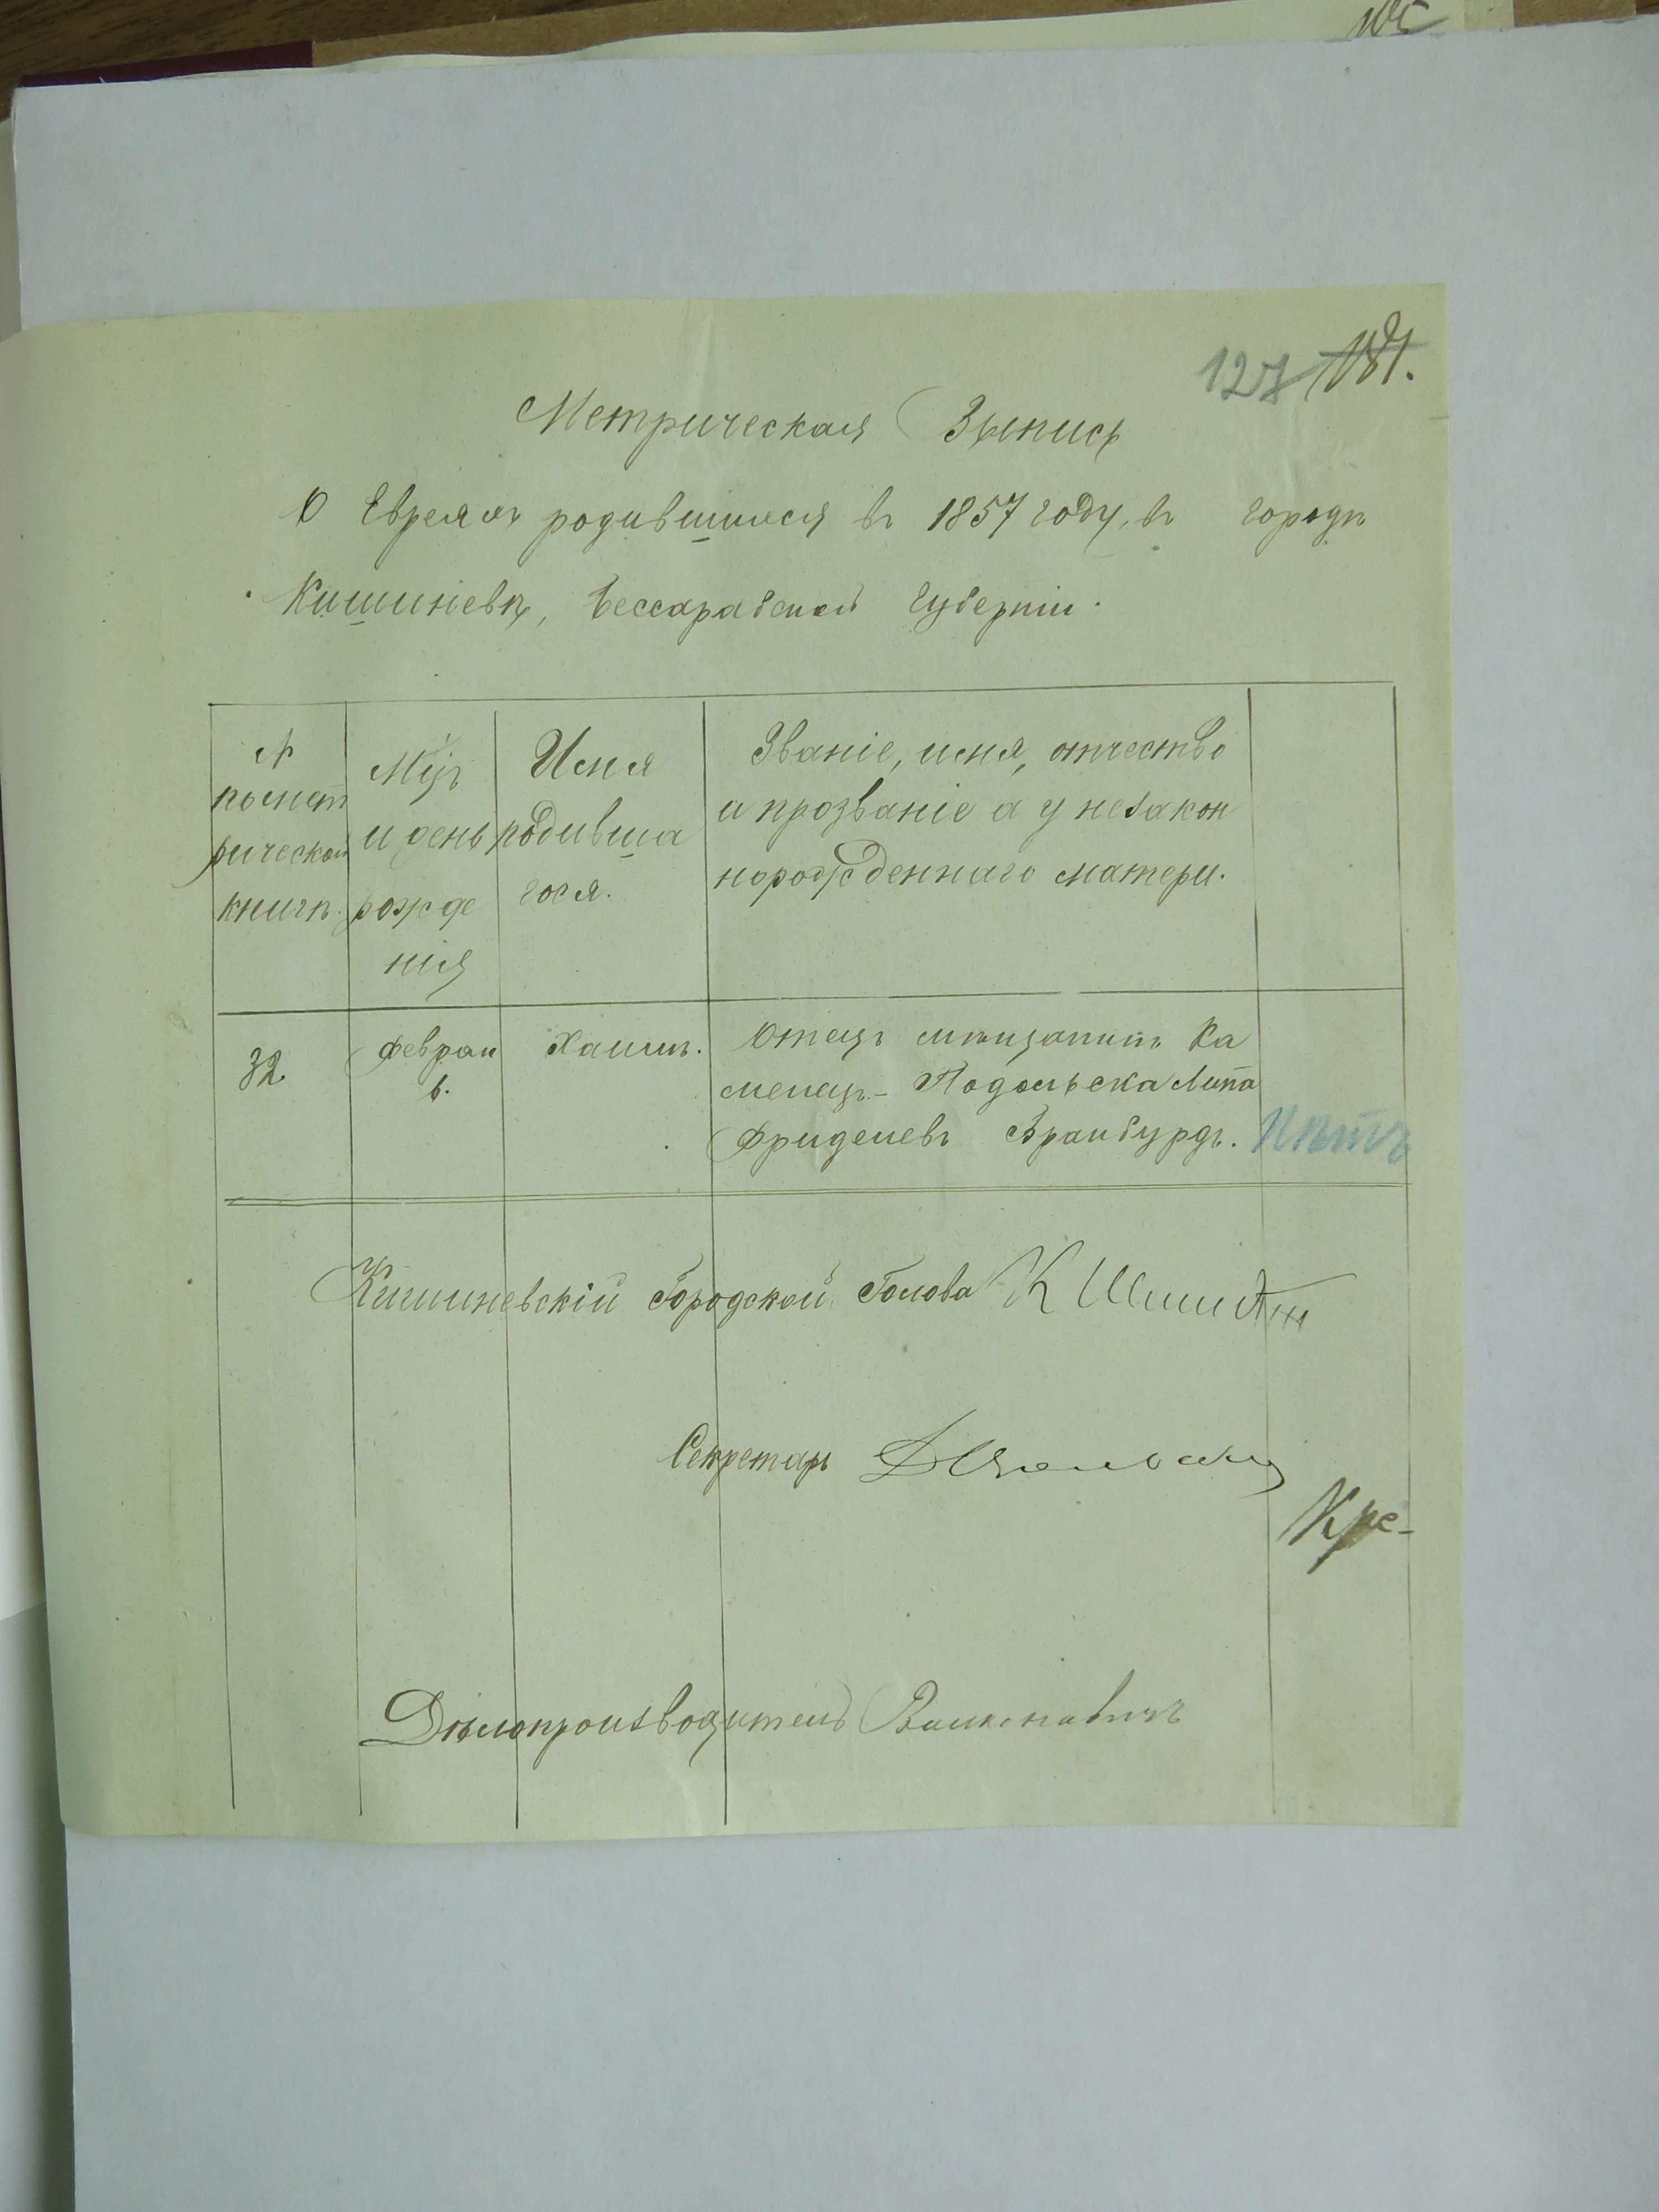 127 181.
Метрическая Выпись
О Евреяхъ родившихся въ 1857 году, въ городѣ
Кишиневѣ, Бессарабской Губерніи.
№ по метрической книгѣ.
Мѣц. и день рожденія
Имя родившагося.
Званіе, имя, отчество
и прозваніе а у незакон
норожденнаго матери.
32
Феврал
6.
Хаимъ.
Отецъ мѣщанинъ Ка
менец-Подольска Липа
Фриделевъ Вранбурдъ.
Нѣтъ
Кишиневскій Городской Голова К Шмидт
Секретарь
Кре-
Дѣлопроизводитель